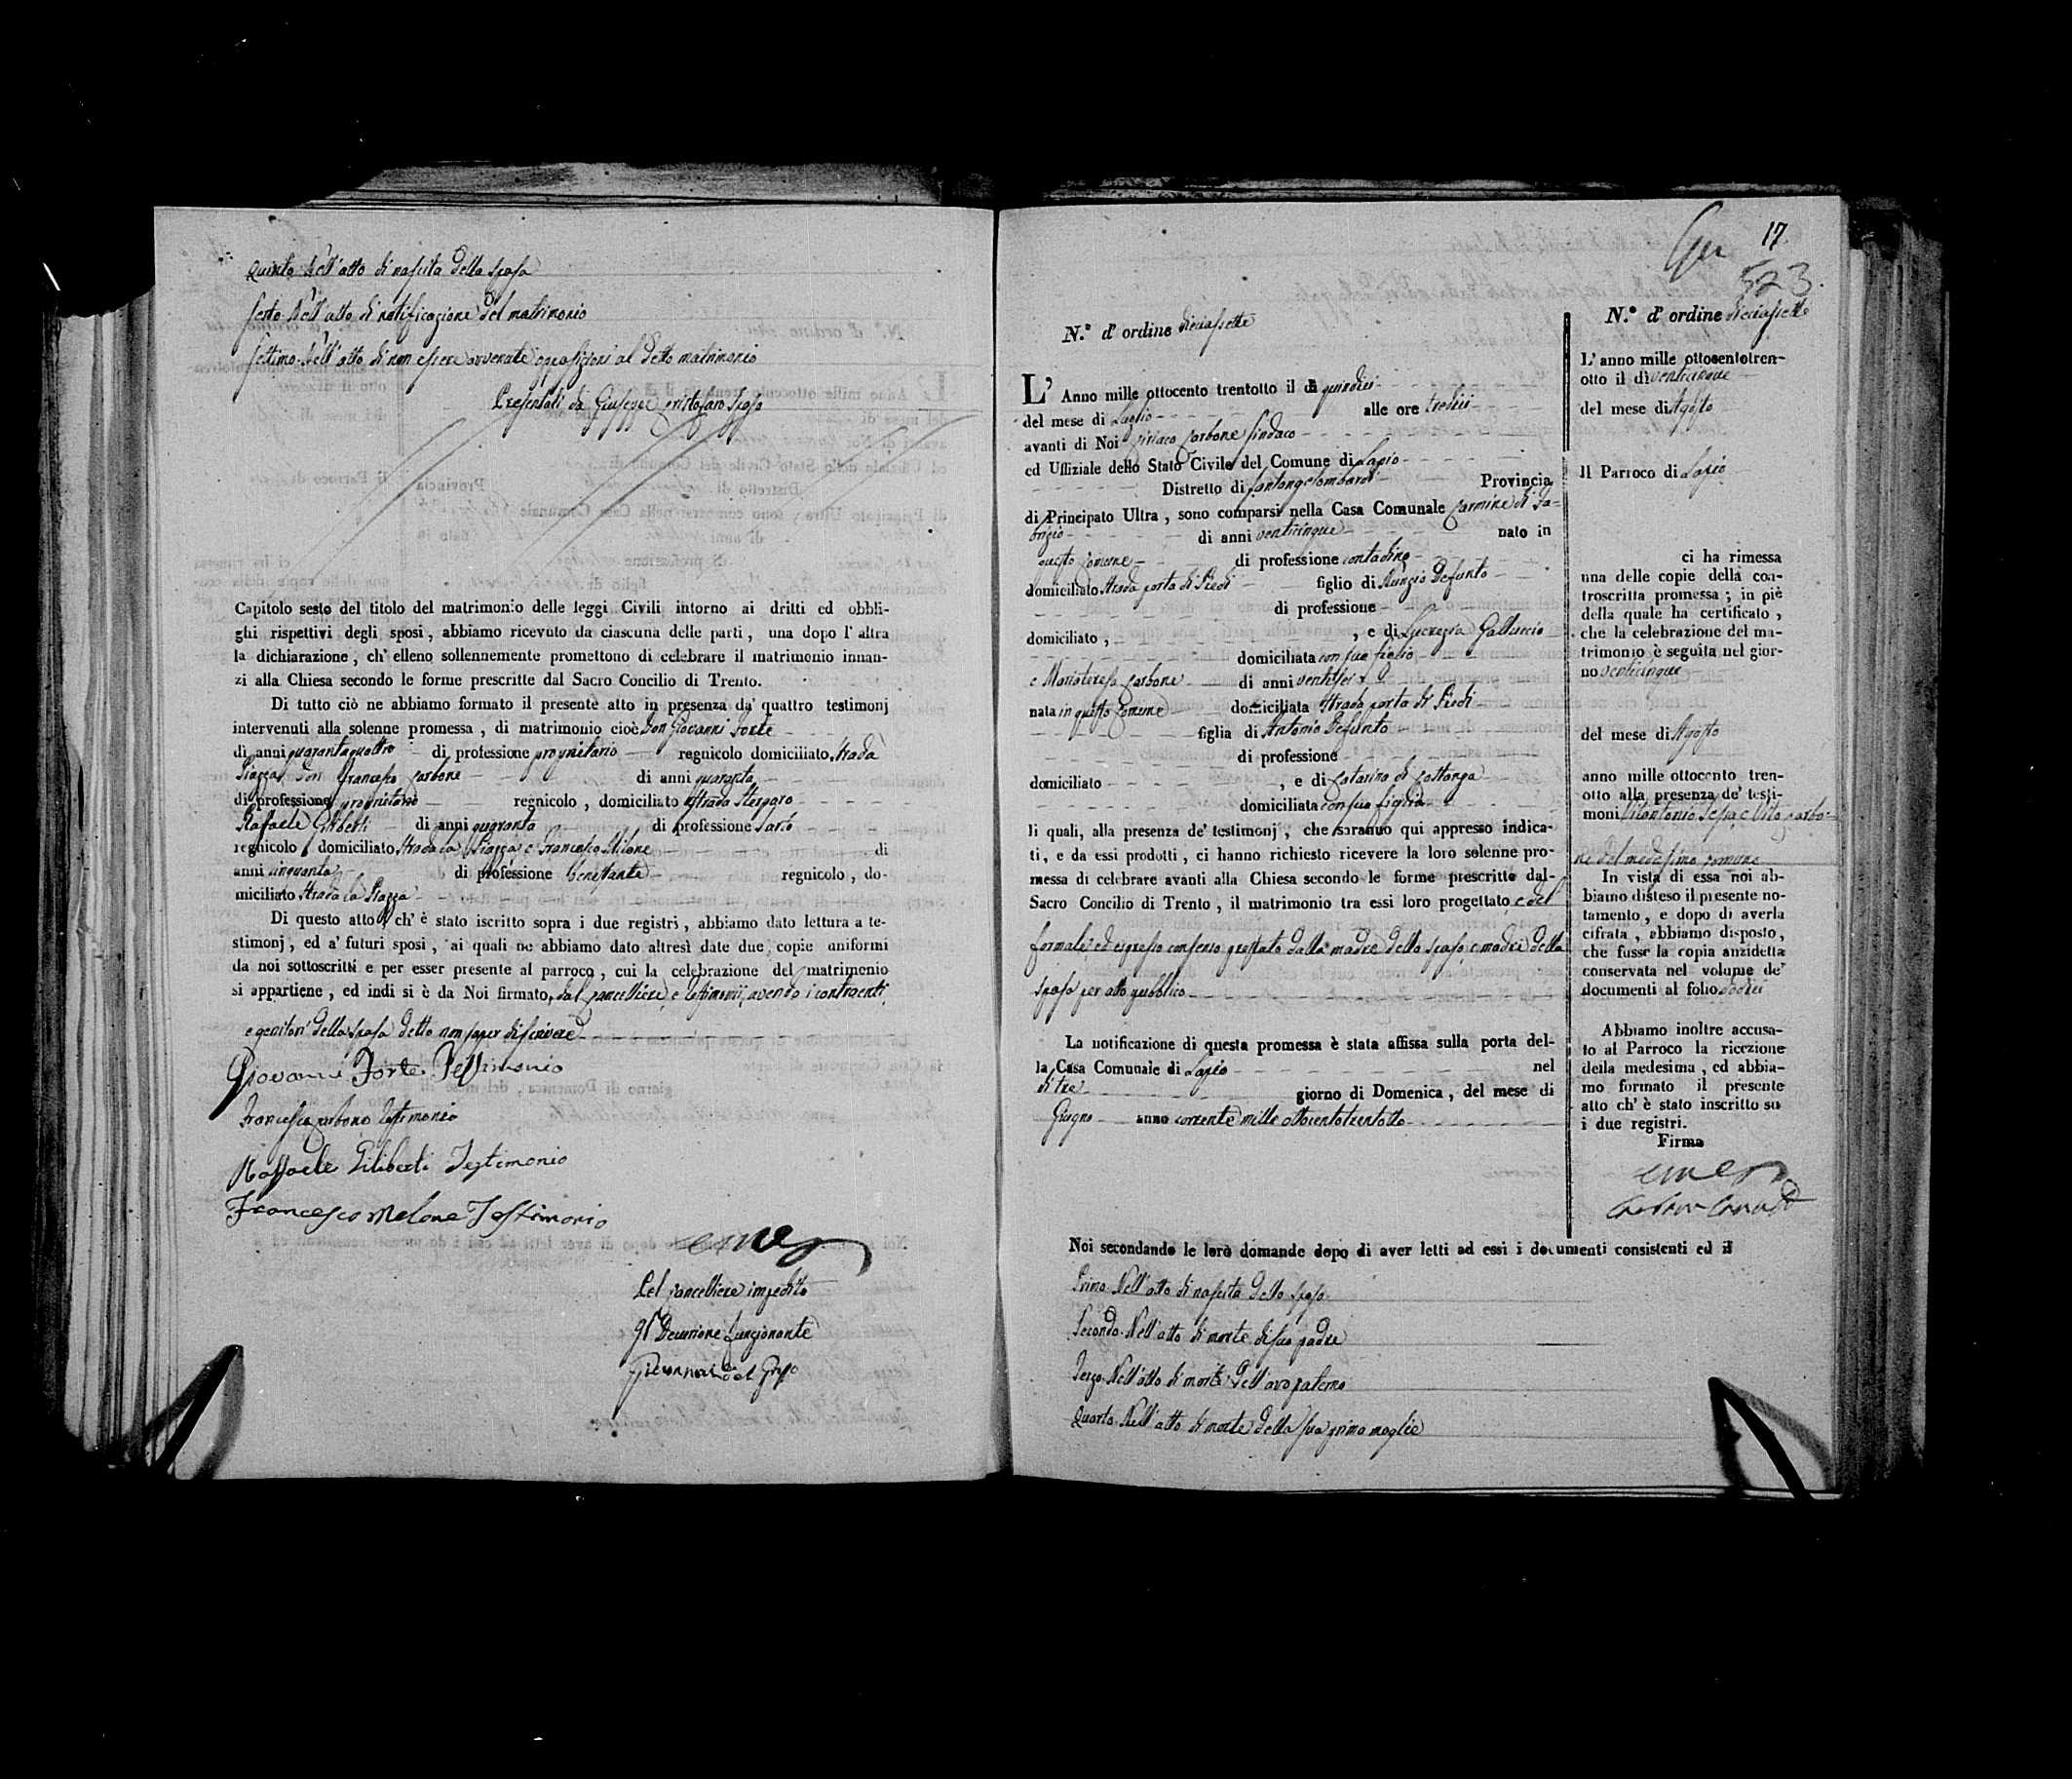 Quinto Nell'atto di nascita della sposa
Sesto Nell'atto di notificazione del matrimonio
Settimo Nell'atto di non essere avvenute opposizioni al detto matrimonio
Presentati da Giuseppe Cristofaro sposo
Capitolo sesto del titolo del matrimonio delle leggi Civili intorno ai dritti ed obbli-
ghi rispettivi degli sposi, abbiamo ricevuto da ciascuna delle parti, una dopo l'altra
la dichiarazione, ch'elleno sollennemente promettono di celebrare il matrimonio innan-
zi alla Chiesa secondo le forme prescritte dal Sacro Concilio di Trento.
Di tutto ciò ne abbiamo formato il presente atto in presenza da' quattro testimonj
intervenuti alla solenne promessa, di matrimonio cioè Don Giovanni Forte
di anni quarantaquattro di professione proprietario regnicolo domiciliato strada
Piazza Don Francesco Carbone di anni quaranta
di professione proprietario regnicolo, domiciliato strada
Rafaele Giliberti di anni quaranta di professione Sarto
regnicolo domiciliato strada la Piazza e Francesco Milone di
anni cinquanta di professione benestante regnicolo, do-
miciliato strada la Piazza
Di questo atto ch'è stato iscritto sopra i due registri, abbiamo dato lettura a te-
stimonj, ed a' futuri sposi, ai quali ne abbiamo dato altresì date due copie uniformi
da noi sottoscritti e per esser presente al parroco, cui la celebrazione del matrimonio
si appartiene, ed indi si è da Noi firmato, dal Cancelliere, e testimonii, avendo i contraenti
e genitori della sposa detto non saper di scrivere
Giovanni Forte Testimonio
Francesco Carbone testimonio
Raffaele Giliberti Testimonio
Francesco Melone Testimonio
Pel Cancelliere impedito
Decurione funzionante
Giovanni del Grosso
17
523.
N.° d'ordine diciassette
L'Anno mille ottocento trentotto il dì quindici
del mese di Luglio alle ore tredici
avanti di Noi Ciriaco Carbone Sindaco
ed Uffiziale dello Stato Civile del Comune di Lapio
Distretto di Santangelombardi Provincia
di Principato Ultra, sono comparsi nella Casa Comunale Carmine di Fa-
brizio di anni venticinque nato in
questo Comune di professione contadino
domiciliato strada porta di Piedi figlio di Nunzio defunto
di professione
domiciliato, , e di Lucrezia Galluccio
domiciliata con suo figlio
e Mariateresa Carbone di anni ventisei
nata in questo Comune domiciliata strada porta di Piedi
figlia di Antonio defunto
di professione
domiciliato , e di Catarina di
domiciliata con sua figlia
li quali, alla presenza de' testimonj, che saranno qui appresso indica-
ti, e da essi prodotti, ci hanno richiesto ricevere la loro solenne pro-
messa di celebrare avanti alla Chiesa secondo le forme prescritte dal
Sacro Concilio di Trento, il matrimonio tra essi loro progettato, e del
formale, ed espresso consenso prestato dalla madre dello sposo, e madre della
sposa per atto pubblico
La notificazione di questa promessa è stata affissa sulla porta del-
la Casa Comunale di Lapio nel
dì tre giorno di Domenica, del mese di
Giugno anno corrente mille ottocentotrentotto
Noi secondando le loro domande dopo di aver letti ad essi i documenti consistenti ed il
Primo Nell'atto di nascita dello sposo
Secondo Nell'atto di morte di suo padre
Terzo Nell'atto di morte dell'avo paterno
Quarto Nell'atto di morte della sua prima moglie
N.° d'ordine diciassette
L'anno mille ottocentotren-
otto il dì venticinque
del mese di Agosto
Il Parroco di Lapio
ci ha rimessa
una delle copie della con-
troscritta promessa; in piè
della quale ha certificato,
che la celebrazione del ma-
trimonio è seguita nel gior-
no venticinque
del mese di Agosto
anno mille ottocento tren-
otto alla presenza de' testi-
moni Vitantonio e Vito Carbo-
ne del medesimo Comune
In vista di essa noi ab-
biamo disteso il presente no-
tamento, e dopo di averla
cifrata, abbiamo disposto,
che fusse la copia anzidetta
conservata nel volume de'
documenti al folio dodici
Abbiamo inoltre accusa-
to al Parroco la ricezione
della medesima, ed abbia-
mo formato il presente
atto ch'è stato inscritto su
i due registri.
Firma